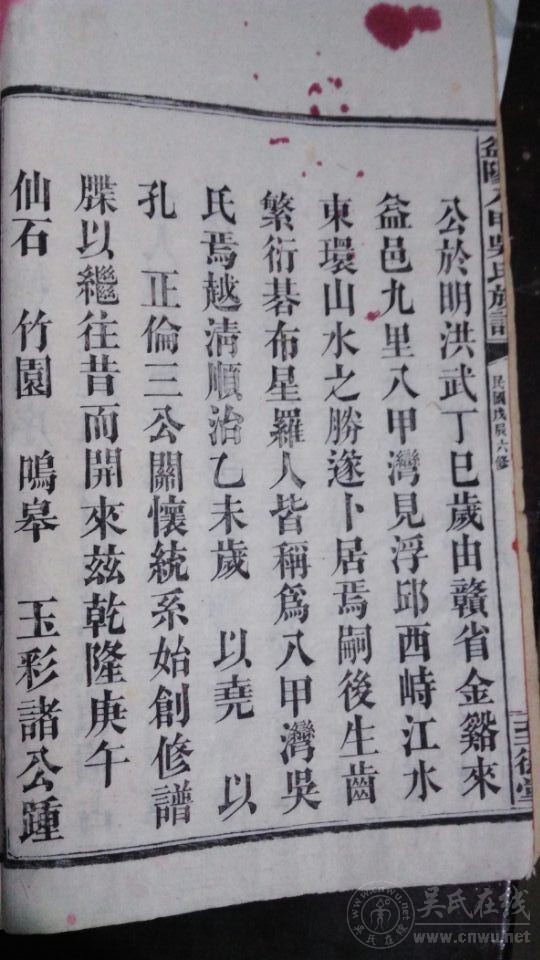 益陽八甲吳氏族譜
民國戊辰六修
公於明洪武丁巳歲由贛省金谿來
益邑九里八甲灣見浮邱西峙江水
東環山水之勝遂卜居焉嗣後生齒
繁衍碁布星羅人皆稱為八甲灣吳
氏焉越清順治乙未歲 以堯 以
孔 正倫三公關懷統系始創修譜
牒以繼往昔而開來茲乾隆庚午
仙石 竹園 鳴皋 玉彩諸公踵
吳氏在线
www.cnwu.net